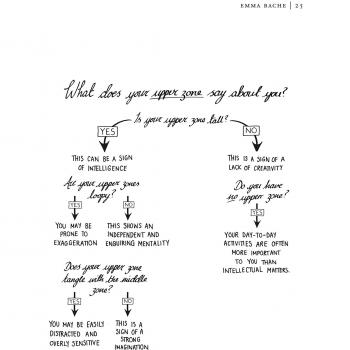 EMMA BACHE | 25
What does your upper zone say about you?
Is your upper zone tall?
YES
NO
THIS CAN BE A SIGN
OF INTELLIGENCE
THIS IS A SIGN OF A
LACK OF CREATIVITY
Are your upper zones
loopy?
Do you have
no upper zone?
YES
NO
YES
YOU MAY BE
PRONE TO
EXAGGERATION
THIS SHOWS AN
INDEPENDENT AND
ENQUIRING MENTALITY
YOUR DAY-TO-DAY
ACTIVITIES ARE OFTEN
MORE IMPORTANT
TO YOU THAN
INTELLECTUAL MATTERS.
Does your upper zone
tangle with the middle
zone?
YES
NO
YOU MAY BE EASILY
DISTRACTED AND
OVERLY SENSITIVE
THIS IS A
SIGN OF A
STRONG
IMAGINATION